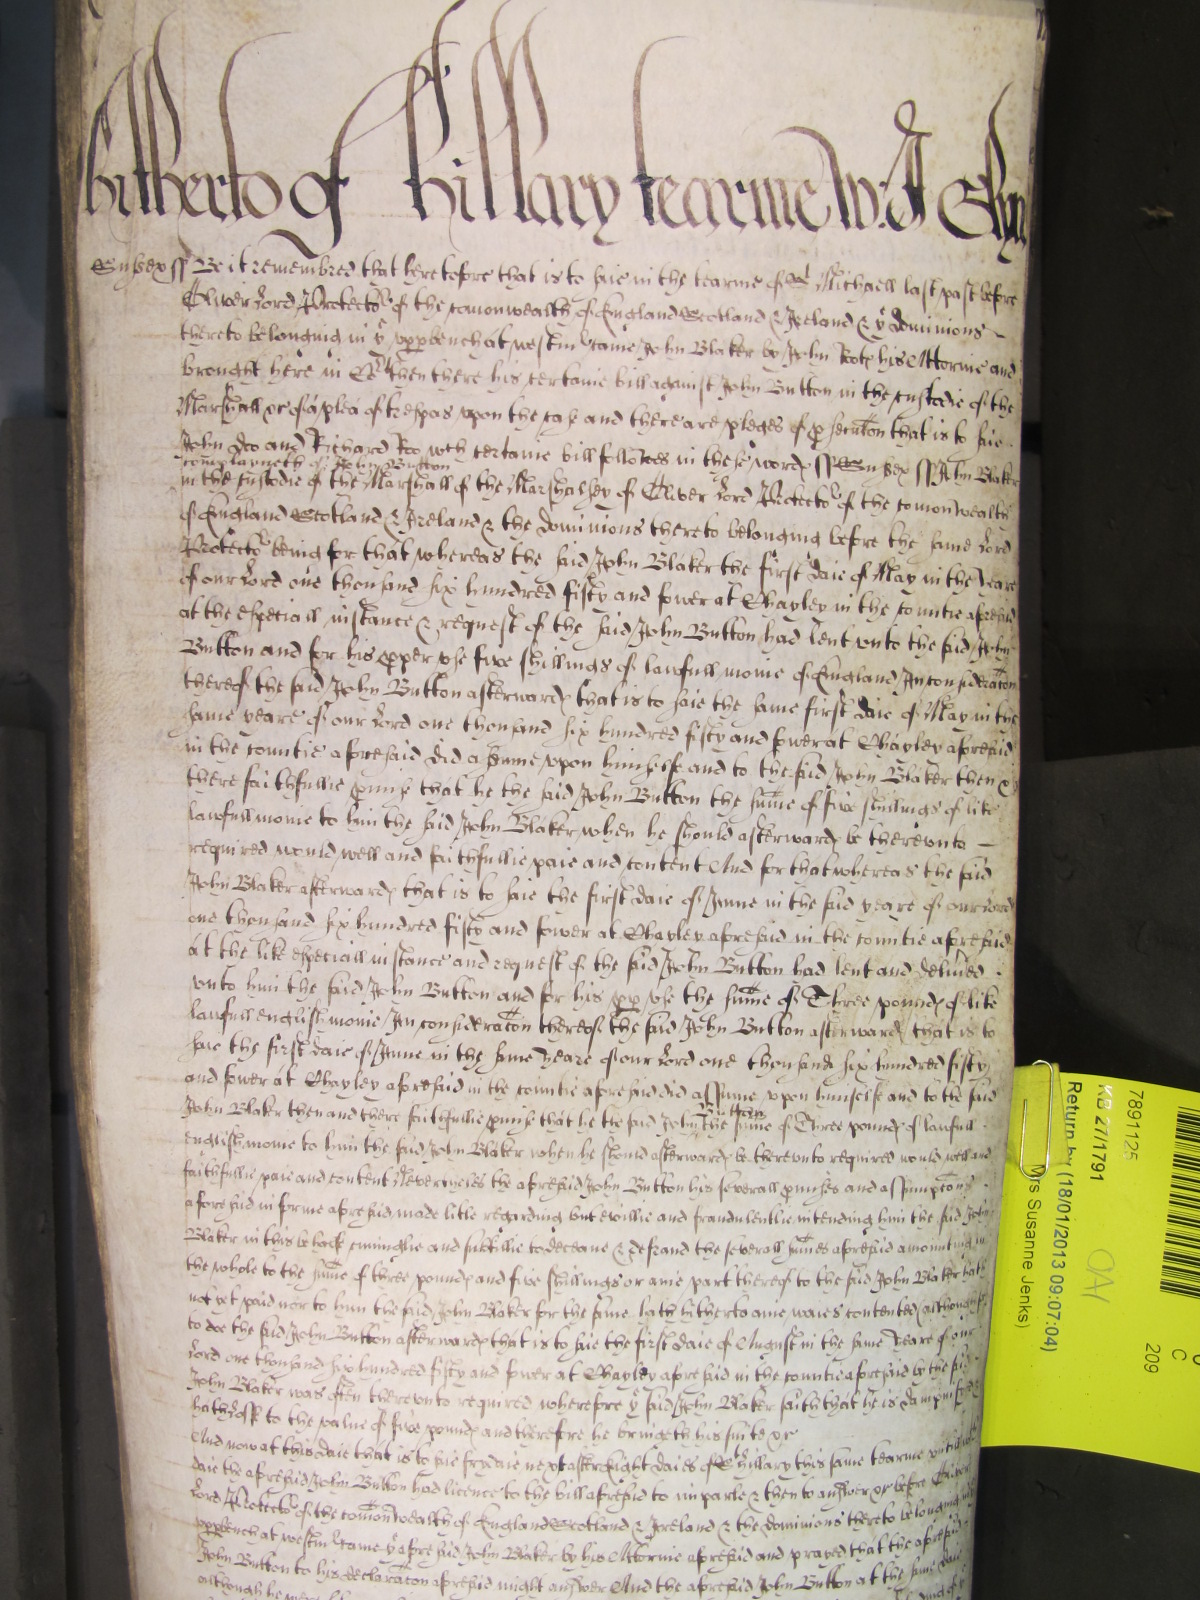 hitherto of Hillary tearme
Sussex ss Be it remembred that heretofore that is to saie in the tearme of St Michaell last past before
Oliver Lord Protector of the comonwealth of England Scotland & Ireland & ye dominions
thereto belonging in ye upper bench at westm came John Blaker by John Roots his Attornie and
brought here in Court then there his certaine bill against John Button in the custodie of the
Marshall &c of a plea of trespas upon the case and there are pleges of psecucon that is to saie
John Doo and Richard Roo wch certaine bill followes in these words ss Sussex ss John Blaker
complayneth of John Button
in the custodie of the Marshall of the Marshalsey of Oliver Lord Protector of the comonwealth
of England Scotland & Ireland & the dominions thereto belonging before the same Lord
Protector being for that whereas the said John Blaker the first daie of May in the yeare
of our Lord one thousand six hundred fifty and fower at Chayley in the countie aforesaid
at the especiall instance & request of the said John Button had lent unto the said John
Button and for his pper use five shillings of lawfull monie of England In consideracon
thereof the said John Button afterwards that is to saie the same first daie of May in the
same yeare of our Lord one thousand six hundred fifty and fower at Chayley aforesaid
in the countie aforesaid did assume upon himselfe and to the said John Blaker then &
there faithfullie pmise that he the said John Button the sume of five shillings of like
lawfull monie to him the said John Blaker when he should afterwards be thereunto
required would well and faithfullie paie and content And for that whereas the said
John Blaker afterwards that is to saie the first daie of June in the said yeare of our Lord
one thousand six hundred fifty and fower at Chayley aforesaid in the countie aforesaid
at the like especiall instance and request of the said John Button had lent and delived
unto him the said John Button and for his pp use the sume of Three pounds of like
lawfull english monie In consideracon thereof the said John Button afterwards that is to
saie the first daie of June in the same yeare of our Lord one thousand six hundred fifty
and fower at Chayley aforesaid in the countie aforesaid did assume upon himselfe and to the said
John Blaker then and there faithfullie pmise that he the said John Button the sume of Three pounds of lawfull
english monie to him the said John Blaker when he should afterwards be thereunto required would well and
faithfullie paie and content Nevertheles the aforesaid John Button his severall pmises and assumptons
aforesaid in forme aforesaid made litle regarding but evillie and fraudulentlie intending him the said John
Blaker in this behalfe cuninglie and subtillie to deceave & defraud the severall sumes aforesaid amounting in
the whole to the sume of three pounds and five shillings or anie part thereof to the said John Blaker hath
not yet paid nor to him the said John Blaker for the same hath hitherto anie waies contented although
to doe the said John Button afterwards that is to saie the first daie of August in the same yeare of our
Lord one thousand six hundred fifty and fower at Chayley aforesaid in the countie aforesaid by the said
John Blaker was often thereunto required wherefore ye said John Blaker saith that he is dampnified &
hath losse to the value of five pounds and therefore he bringeth his suite &c
And now at this daie that is to saie frydaie next after eight daies of St Hillary this same tearme untill wch
daie the aforesaid John Button had licence to the bill aforesaid to imparle & then to answer &c before Oliver
Lord Protector of the comonwealth of England Scotland & Ireland & the dominions thereto belonging in ye
upper bench at westm came ye aforesaid John Blaker by his Attornie aforesaid and prayed that the aforesaid
John Button to his declaracon aforesaid might answer And the aforesaid John Button at the same daie
although he were
7891125
KB 27/1791
Return by (18/01/2013 09:07:04)
Mrs Susanne Jenks)
C
209